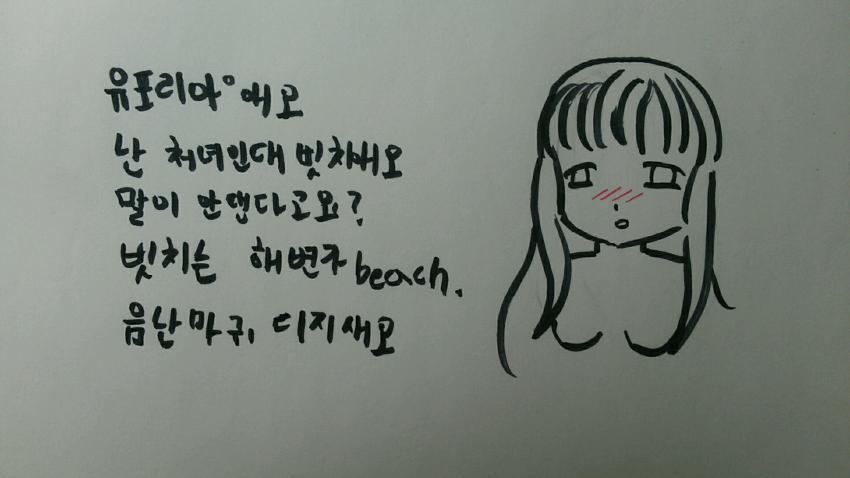 유포리아°에고
난 처녀인대 빗치새오
말이 안댄다고요?
빗치는 해변가 beach.
음난마귀, 디지새오